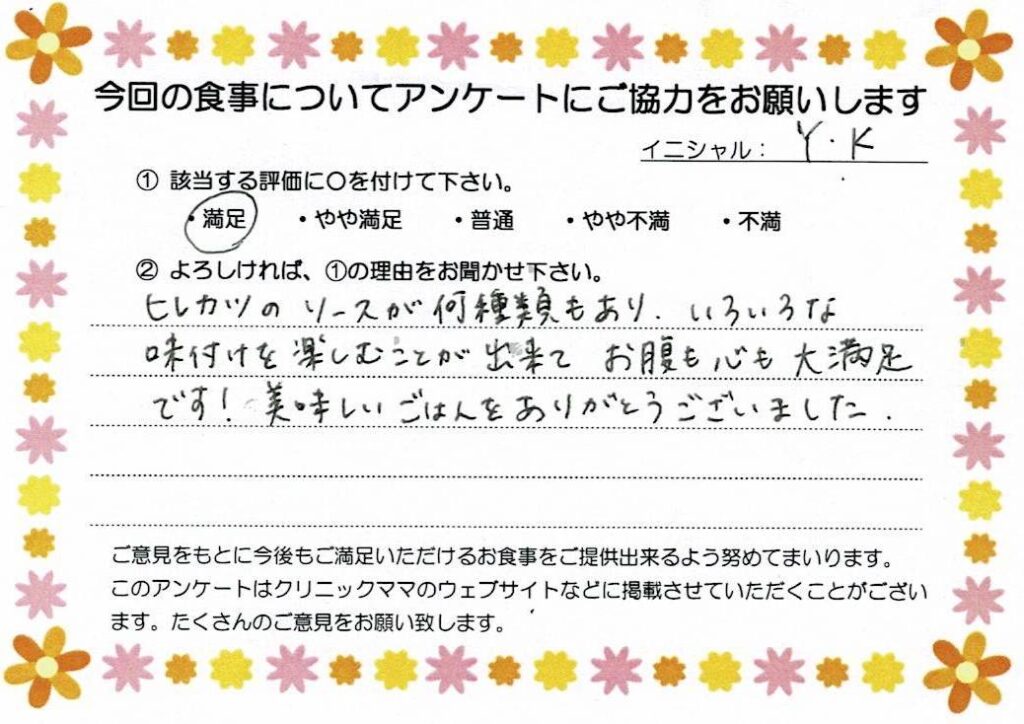 今回の食事についてアンケートにご協力をお願いします
イニシャル： Y.K
① 該当する評価に〇を付けて下さい。
・満足 ・やや満足 ・普通 ・やや不満 ・不満
② よろしければ、①の理由をお聞かせ下さい。
ヒレカツの ソースが 何種類もあり、いろいろな
味付けを 楽しむことが 出来て お腹も心も 大満足
です! 美味しい ごはんを ありがとうございました.
ご意見をもとに今後もご満足いただけるお食事をご提供出来るよう努めてまいります。
このアンケートはクリニックママのウェブサイトなどに掲載させていただくことがござい
ます。たくさんのご意見をお願い致します。